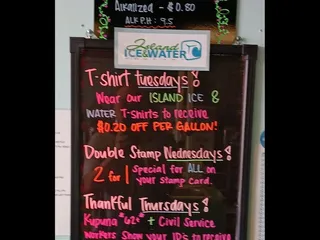 Alkalized - $0.80
ALK P.H: 9.5
Island
ICE & WATER
T-shirt tuesdays!
Wear our ISLAND ICE &
WATER T-shirts to receive
$0.20 OFF PER GALLON!
Double Stamp Wednesdays!
2 for 1 Special for ALL on
your stamp card.
Thankful Thursdays!
Kupuna "62+" + Civil Service
Workers Show your ID's to receive